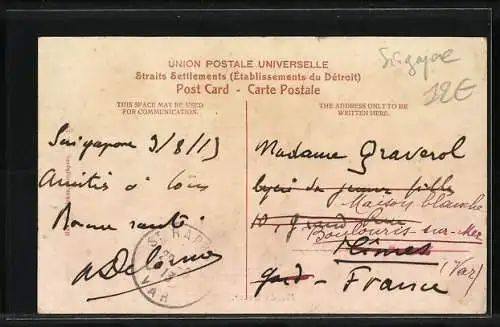 Singapore
12€
UNION POSTALE UNIVERSELLE
Straits Settlements (Établissements du Détroit)
Post Card - Carte Postale
THIS SPACE MAY BE USED
FOR COMMUNICATION.
THE ADDRESS ONLY TO BE
WRITTEN HERE.
Singapore 3/8/13
Amitiés à tous
Bonne santé
Madame Graverol
Lycée de jeunes filles
Maison blanche
10, Grand Rue
Boulouris-sur-Mer
Nîmes
(Var)
Gard - France
RAPH
VAR